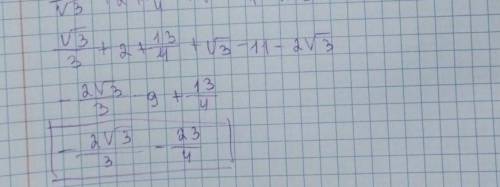 √3/3 + 2 + 13/4 + √3 - 11 - 2√3
- 2√3/3 - 9 + 13/4
- 2√3/3 - 23/4